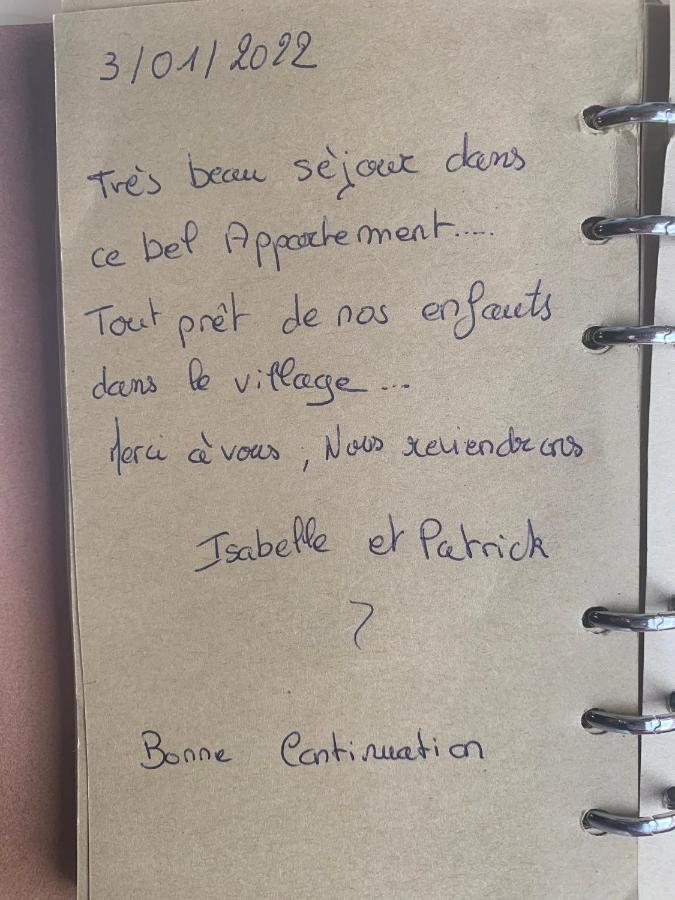 3/01/2022
Très beau sèjour dans
ce bel Appartement.....
Tout prêt de nos enfants
dans le village ...
Merci à vous, Nous reviendrons
Isabelle et Patrick
Bonne Continuation